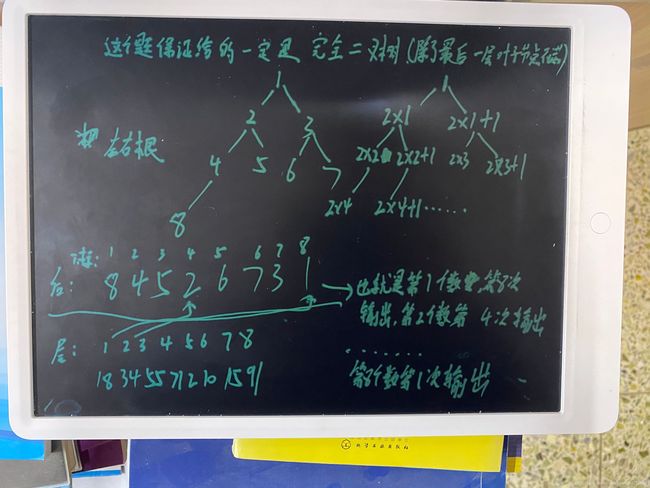 这个题保证给的一定是 完全二叉树(除了最后一层叶子节点
1 1
2 3 2×1 2×1+1
左右根 4 5 6 7 2×2 2×2+1 2×3 2×3+1
8 2×4 2×4+1 ……
1 2 3 4 5 6 7 8
后: 8 4 5 2 6 7 3 1 → 也就是第1个数 第8次
输出,第2个数第 4次输出
层: 1 2 3 4 5 6 7 8
……
18 34 55 71 2 10 15 91
第8个数第1次输出
化学工业出版社